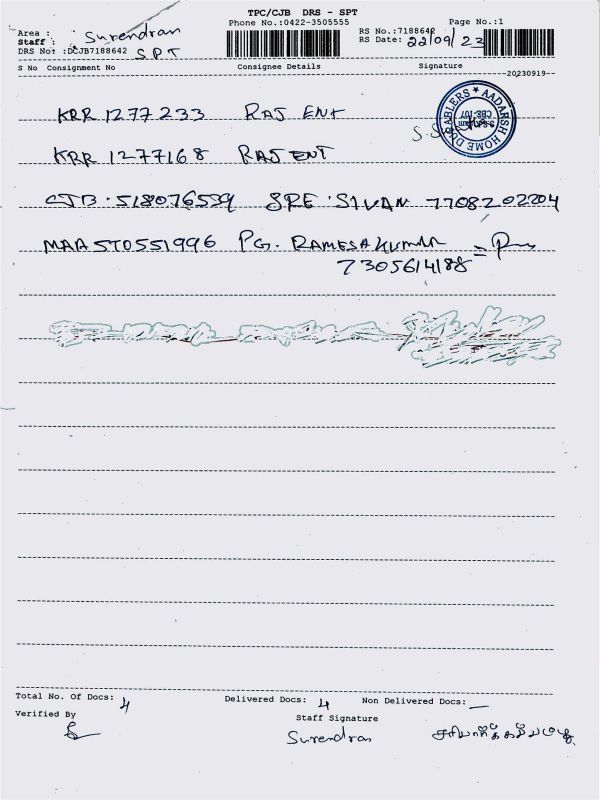 TPC/CJB DRS - SPT
Phone No.:0422-3505555 Page No.:1
Area :
Staff : Surendran
DRS No :DCJB7188642 SPT
RS No.:7188642
RS Date: 22/09/23
S No Consignment No Consignee Details Signature
20230919
KRR 1277233 RAJ ENT
AADARSH HOME DURABLERS
CBE-107
KRR 1277168 RAJ ENT
CJB 518076539 SRE SIVAN 7708202204
MAA570551996 PG. RAMESAKUMAR
7305614188
Total No. Of Docs: 4 Delivered Docs: 4 Non Delivered Docs: —
Verified By Staff Signature
Surendran